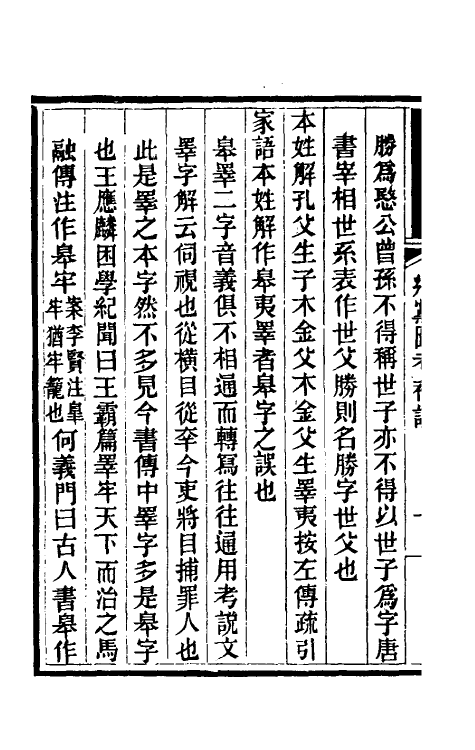 勝爲愍公曾孫不得稱世子亦不得以世子爲字唐
書宰相世系表作世父勝則名勝字世父也
本姓解孔父生子木金父木金父生睪夷按左傳疏引
家語本姓解作皋夷睪者皋字之誤也
皋睪二字音義俱不相通而轉寫往往通用考說文
睪字解云伺視也從橫目從㚔今吏將目捕罪人也
此是睪之本字然不多見今書傳中睪字多是皋字
也王應麟困學紀聞曰王霸篇睪牢天下而治之馬
融傳注作皋牢案李賢注皋牢猶牢籠也何義門曰古人書皋作